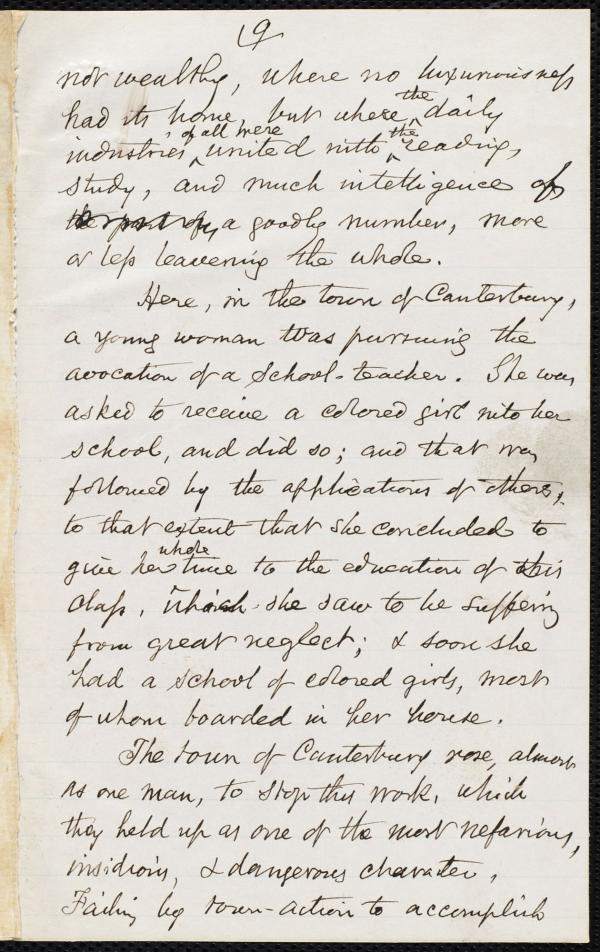 9
not wealthy, where no luxuriousness
had its home, but where the daily
industries of all were united with the reading,
study, and much intelligence of
a goodly number, more
or less leavening the whole.
Here, in the town of Canterbury,
a young woman was pursuing the
avocation of a School-teacher. She was
asked to receive a colored girl into her
school, and did so; and that was
followed by the applications of others,
to that extent that she concluded to
give her whole time to the education of this
class, which she saw to be suffering
from great neglect; & soon she
had a school of colored girls, most
of whom boarded in her house.
The town of Canterbury rose, almost
as one man, to stop this work, which
they held up as one of the most nefarious,
insidious, & dangerous character.
Failing by town-action to accomplish